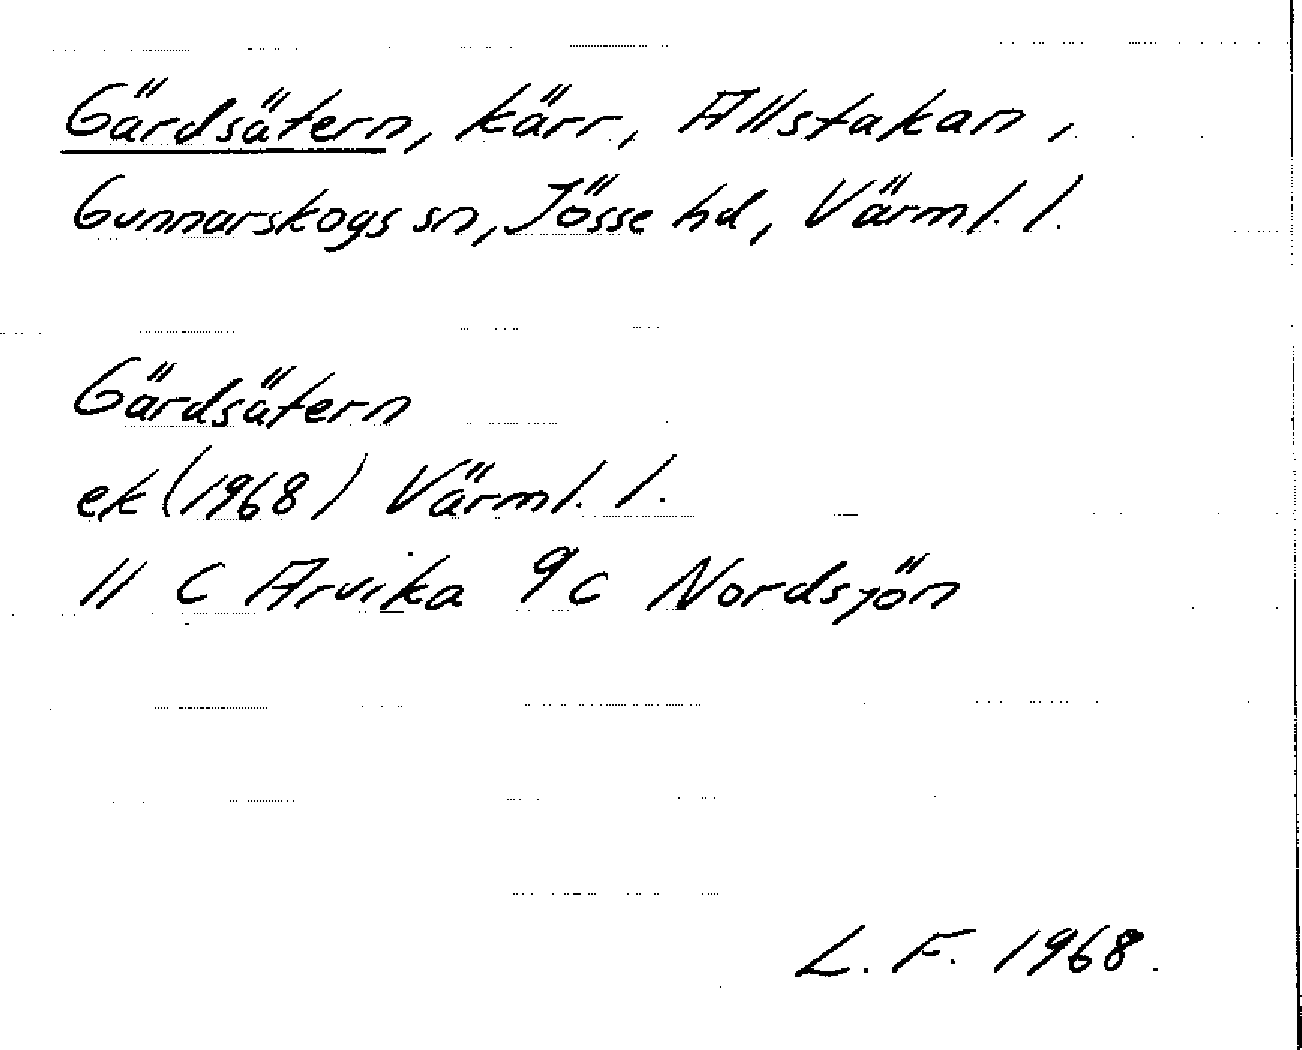 Gärdsätern, kärr, Allstakan,
Gunnarskogs sn, Jösse hd, Värml. l.
Gärdsätern
ek (1968) Värml. l.
11 C Arvika 9c Nordsjön
L. F. 1968.